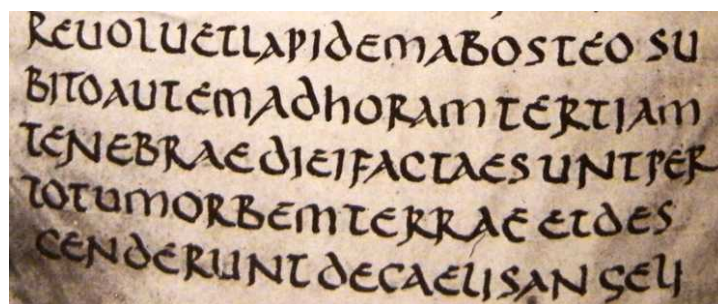 REUOLUET LAPIDEM AB OSTEO SU
BITO AUTEM AD HORAM TERTIAM
TENEBRAE DIEI FACTAE SUNT PER
TOTUM ORBEM TERRAE ET DES
CENDERUNT DE CAELIS ANGELI